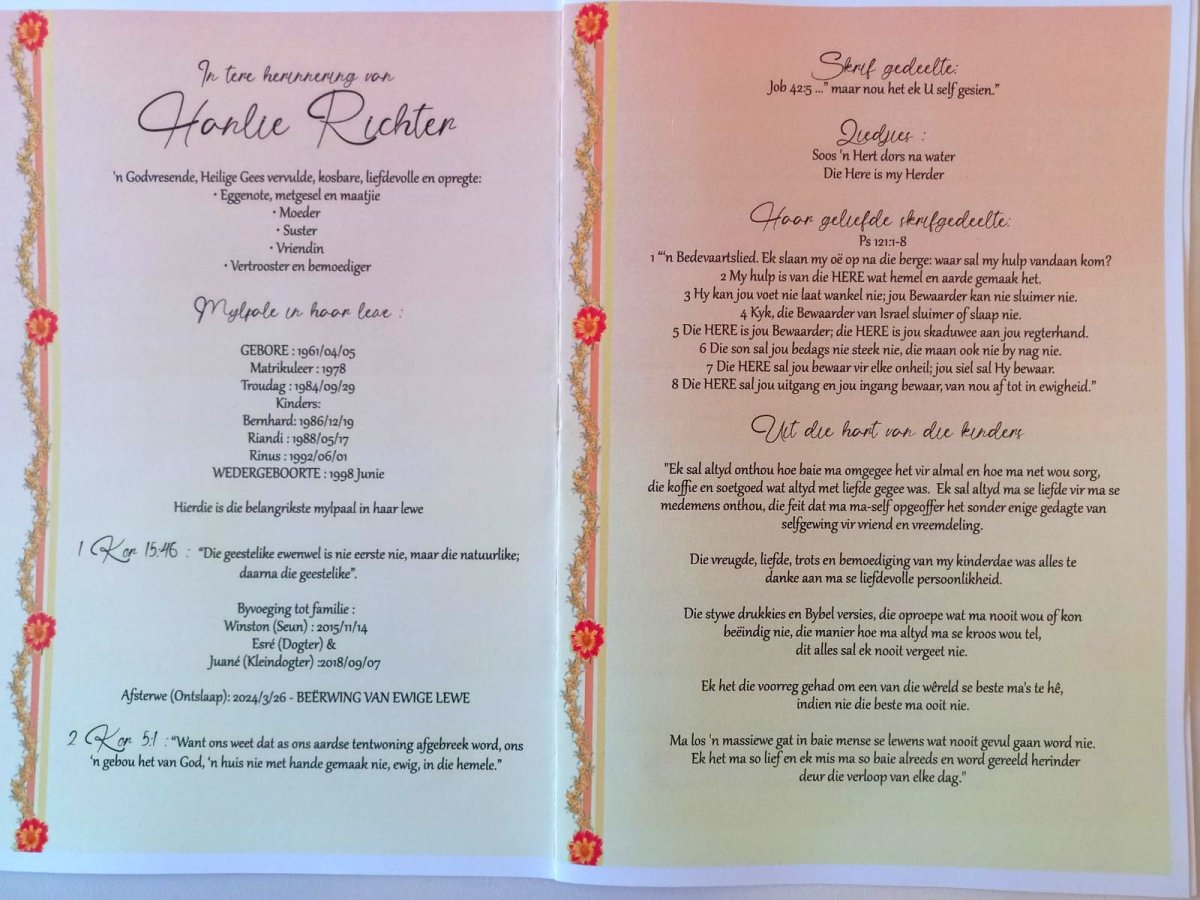 In tere herinnering van
Hanlie Richter
'n Godvresende, Heilige Gees vervulde, kosbare, liefdevolle en opregte:
• Eggenote, metgesel en maatjie
• Moeder
• Suster
• Vriendin
• Vertrooster en bemoediger
Mylpale in haar lewe :
GEBORE : 1961/04/05
Matrikuleer : 1978
Troudag : 1984/09/29
Kinders:
Bernhard: 1986/12/19
Riandi : 1988/05/17
Rinus : 1992/06/01
WEDERGEBOORTE : 1998 Junie
Hierdie is die belangrikste mylpaal in haar lewe
1 Kor 15:46 : “Die geestelike ewenwel is nie eerste nie, maar die natuurlike;
daarna die geestelike”.
Byvoeging tot familie :
Winston (Seun) : 2015/11/14
Esré (Dogter) &
Juané (Kleindogter) :2018/09/07
Afsterwe (Ontslaap): 2024/3/26 - BEËRWING VAN EWIGE LEWE
2 Kor 5:1 : “Want ons weet dat as ons aardse tentwoning afgebreek word, ons
‘n gebou het van God, ‘n huis nie met hande gemaak nie, ewig, in die hemele.”
Skrif gedeelte:
Job 42:5 ...” maar nou het ek U self gesien.”
Liedjies :
Soos 'n Hert dors na water
Die Here is my Herder
Haar geliefde skrifgedeelte:
Ps 121:1-8
1 “‘n Bedevaartslied. Ek slaan my oë op na die berge: waar sal my hulp vandaan kom?
2 My hulp is van die HERE wat hemel en aarde gemaak het.
3 Hy kan jou voet nie laat wankel nie; jou Bewaarder kan nie sluimer nie.
4 Kyk, die Bewaarder van Israel sluimer of slaap nie.
5 Die HERE is jou Bewaarder; die HERE is jou skaduwee aan jou regterhand.
6 Die son sal jou bedags nie steek nie, die maan ook nie by nag nie.
7 Die HERE sal jou bewaar vir elke onheil; jou siel sal Hy bewaar.
8 Die HERE sal jou uitgang en jou ingang bewaar, van nou af tot in ewigheid.”
Uit die hart van die kinders
"Ek sal altyd onthou hoe baie ma omgegee het vir almal en hoe ma net wou sorg,
die koffie en soetgoed wat altyd met liefde gegee was. Ek sal altyd ma se liefde vir ma se
medemens onthou, die feit dat ma ma-self opgeoffer het sonder enige gedagte van
selfgewing vir vriend en vreemdeling.
Die vreugde, liefde, trots en bemoediging van my kinderdae was alles te
danke aan ma se liefdevolle persoonlikheid.
Die stywe drukkies en Bybel versies, die oproepe wat ma nooit wou of kon
beëindig nie, die manier hoe ma altyd ma se kroos wou tel,
dit alles sal ek nooit vergeet nie.
Ek het die voorreg gehad om een van die wêreld se beste ma's te hê,
indien nie die beste ma ooit nie.
Ma los 'n massiewe gat in baie mense se lewens wat nooit gevul gaan word nie.
Ek het ma so lief en ek mis ma so baie alreeds en word gereeld herinder
deur die verloop van elke dag."